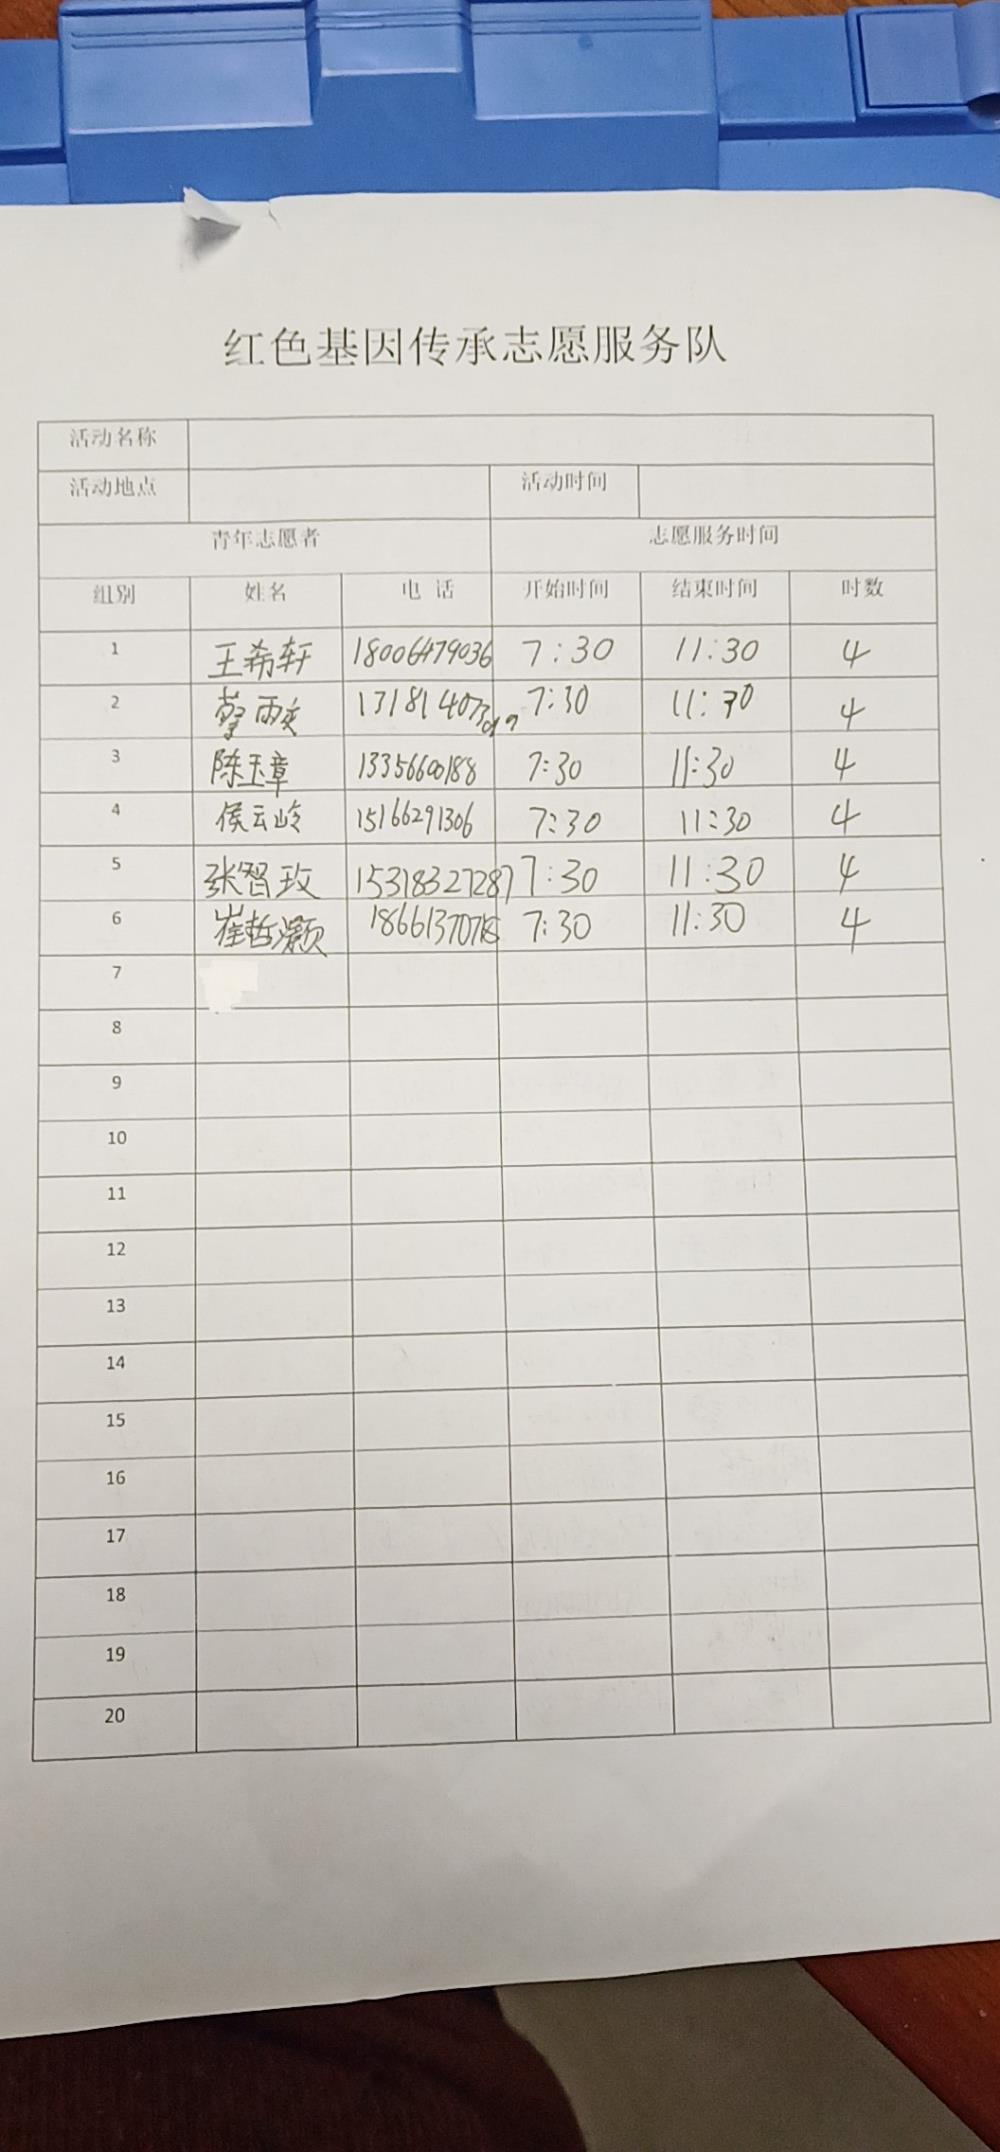 红色基因传承志愿服务队
活动名称
活动地点 活动时间
青年志愿者 志愿服务时间
组别 姓名 电 话 开始时间 结束时间 时数
1 王希轩 18006479036 7:30 11:30 4
2 7:30 11:30 4
3 陈玉章 13356600188 7:30 11:30 4
4 侯云岭 15166291306 7:30 11:30 4
5 张智玫 15318327287 7:30 11:30 4
6 崔哲灏 7:30 11:30 4
7
8
9
10
11
12
13
14
15
16
17
18
19
20